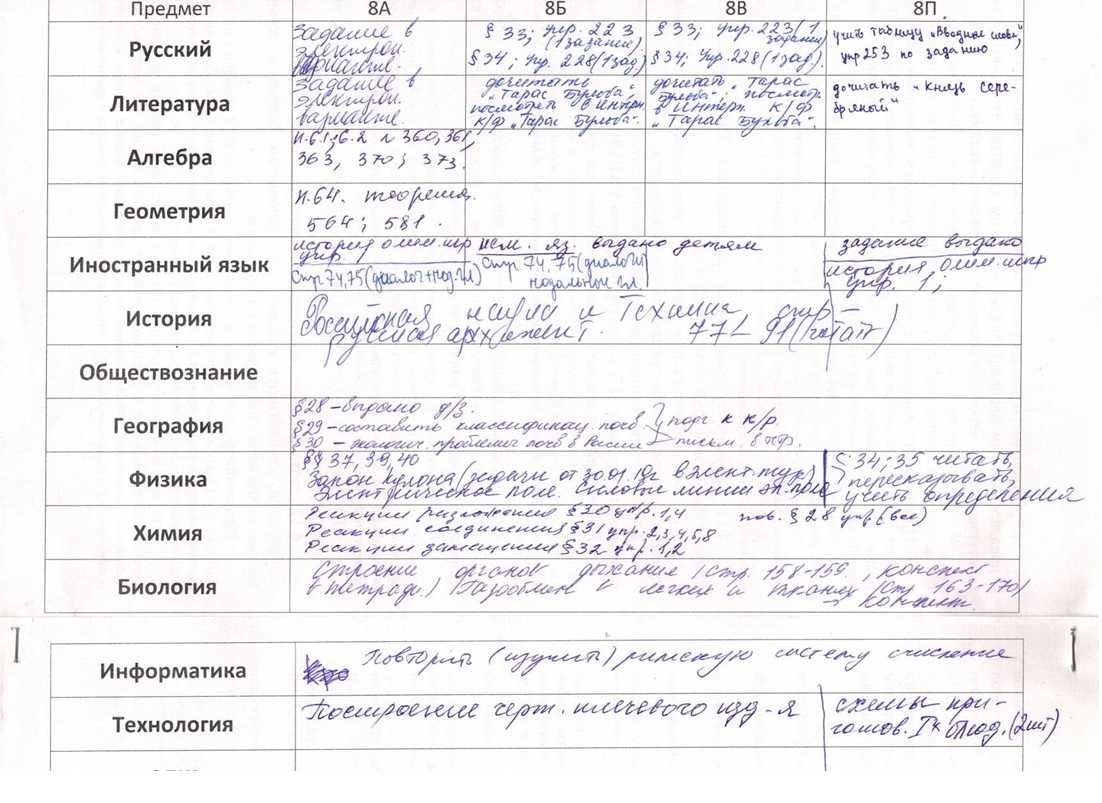 Предмет 8А 8Б 8В 8П
Русский
задание в
электрон.
варианте.
§ 33; упр. 223
(1 задание).
§ 34; упр. 228 (1 зад)
§ 33; упр. 223 (1
задание)
§ 34; упр. 228 (1 зад).
учить таблицу „Вводные слова",
упр 253 по заданию
Литература
задание в
электрон.
варианте.
дочитать
„Тарас Бульба",
посмотреть в интерн.
к/ф „Тарас Бульба".
дочитать „Тарас
Бульба"; посмотр.
в интерн. к/ф
„Тарас Бульба".
дочитать „Князь Сере-
бряный"
Алгебра
п.6.1; 6.2 № 360, 361,
363, 370; 373.
Геометрия
п.64. теорема.
564; 581.
Иностранный язык
история олим. игр
упр.
Стр 74,75 (диалог + мод. гл.)
нем. яз. выдано детям
Стр 74, 75 (диалог
модальные гл.
задание выдано
история олим. игр
упр. 1;
История
Российская наука и техника стр
русская архитект. 77-91 (читать)
Обществознание
География
§28 - выдано д/з.
§29 - составить классификац. почв
§30 - экологич. проблемы почв в России
подг. к к/р
письм. в тетр.
Физика
§§ 37, 39, 40
Закон Кулона (задачи от 30.01.19г в элект.жур)
Электрическое поле. Силовые линии эл. поля
§ 34; 35 читать,
пересказывать,
учить определения
Химия
Реакции разложения § 30 упр. 1,4
Реакции соединения § 31 упр. 2,3,4,5,8
Реакции замещения § 32 упр. 1,2
пов. § 28 упр (все)
Биология
Строение органов дыхание (стр. 158-159, конспект
в тетради) Газообмен в легких и тканях (стр 163-170)
→ конспект.
Информатика
Повторить (изучить) римскую систему счисления
Технология
Построение черт. плечевого изд-я
схемы при-
готов. I х блюд. (2шт)